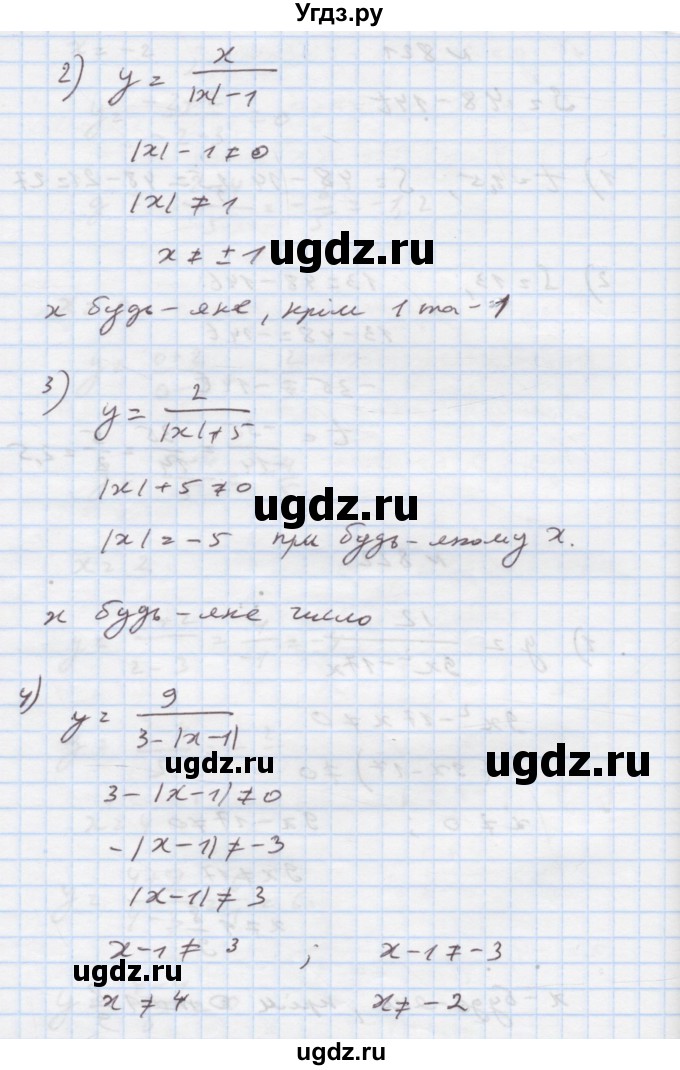 Угдз.ру
2) y = x / (|x| - 1)
|x| - 1 ≠ 0
|x| ≠ 1
x ≠ ± 1
ugdz.ru
x будь-яке, крім 1 та -1
3) y = 2 / (|x| + 5)
|x| + 5 ≠ 0
ugdz.ru
|x| = -5 при будь-якому x.
x будь-яке число
4) y = 9 / (3 - |x-1|)
ugdz.ru
ugdz.ru
3 - |x-1| ≠ 0
-|x-1| ≠ -3
|x-1| ≠ 3
x-1 ≠ 3 ; x-1 ≠ -3
ugdz.ru
x ≠ 4 x ≠ -2
ugdz.ru